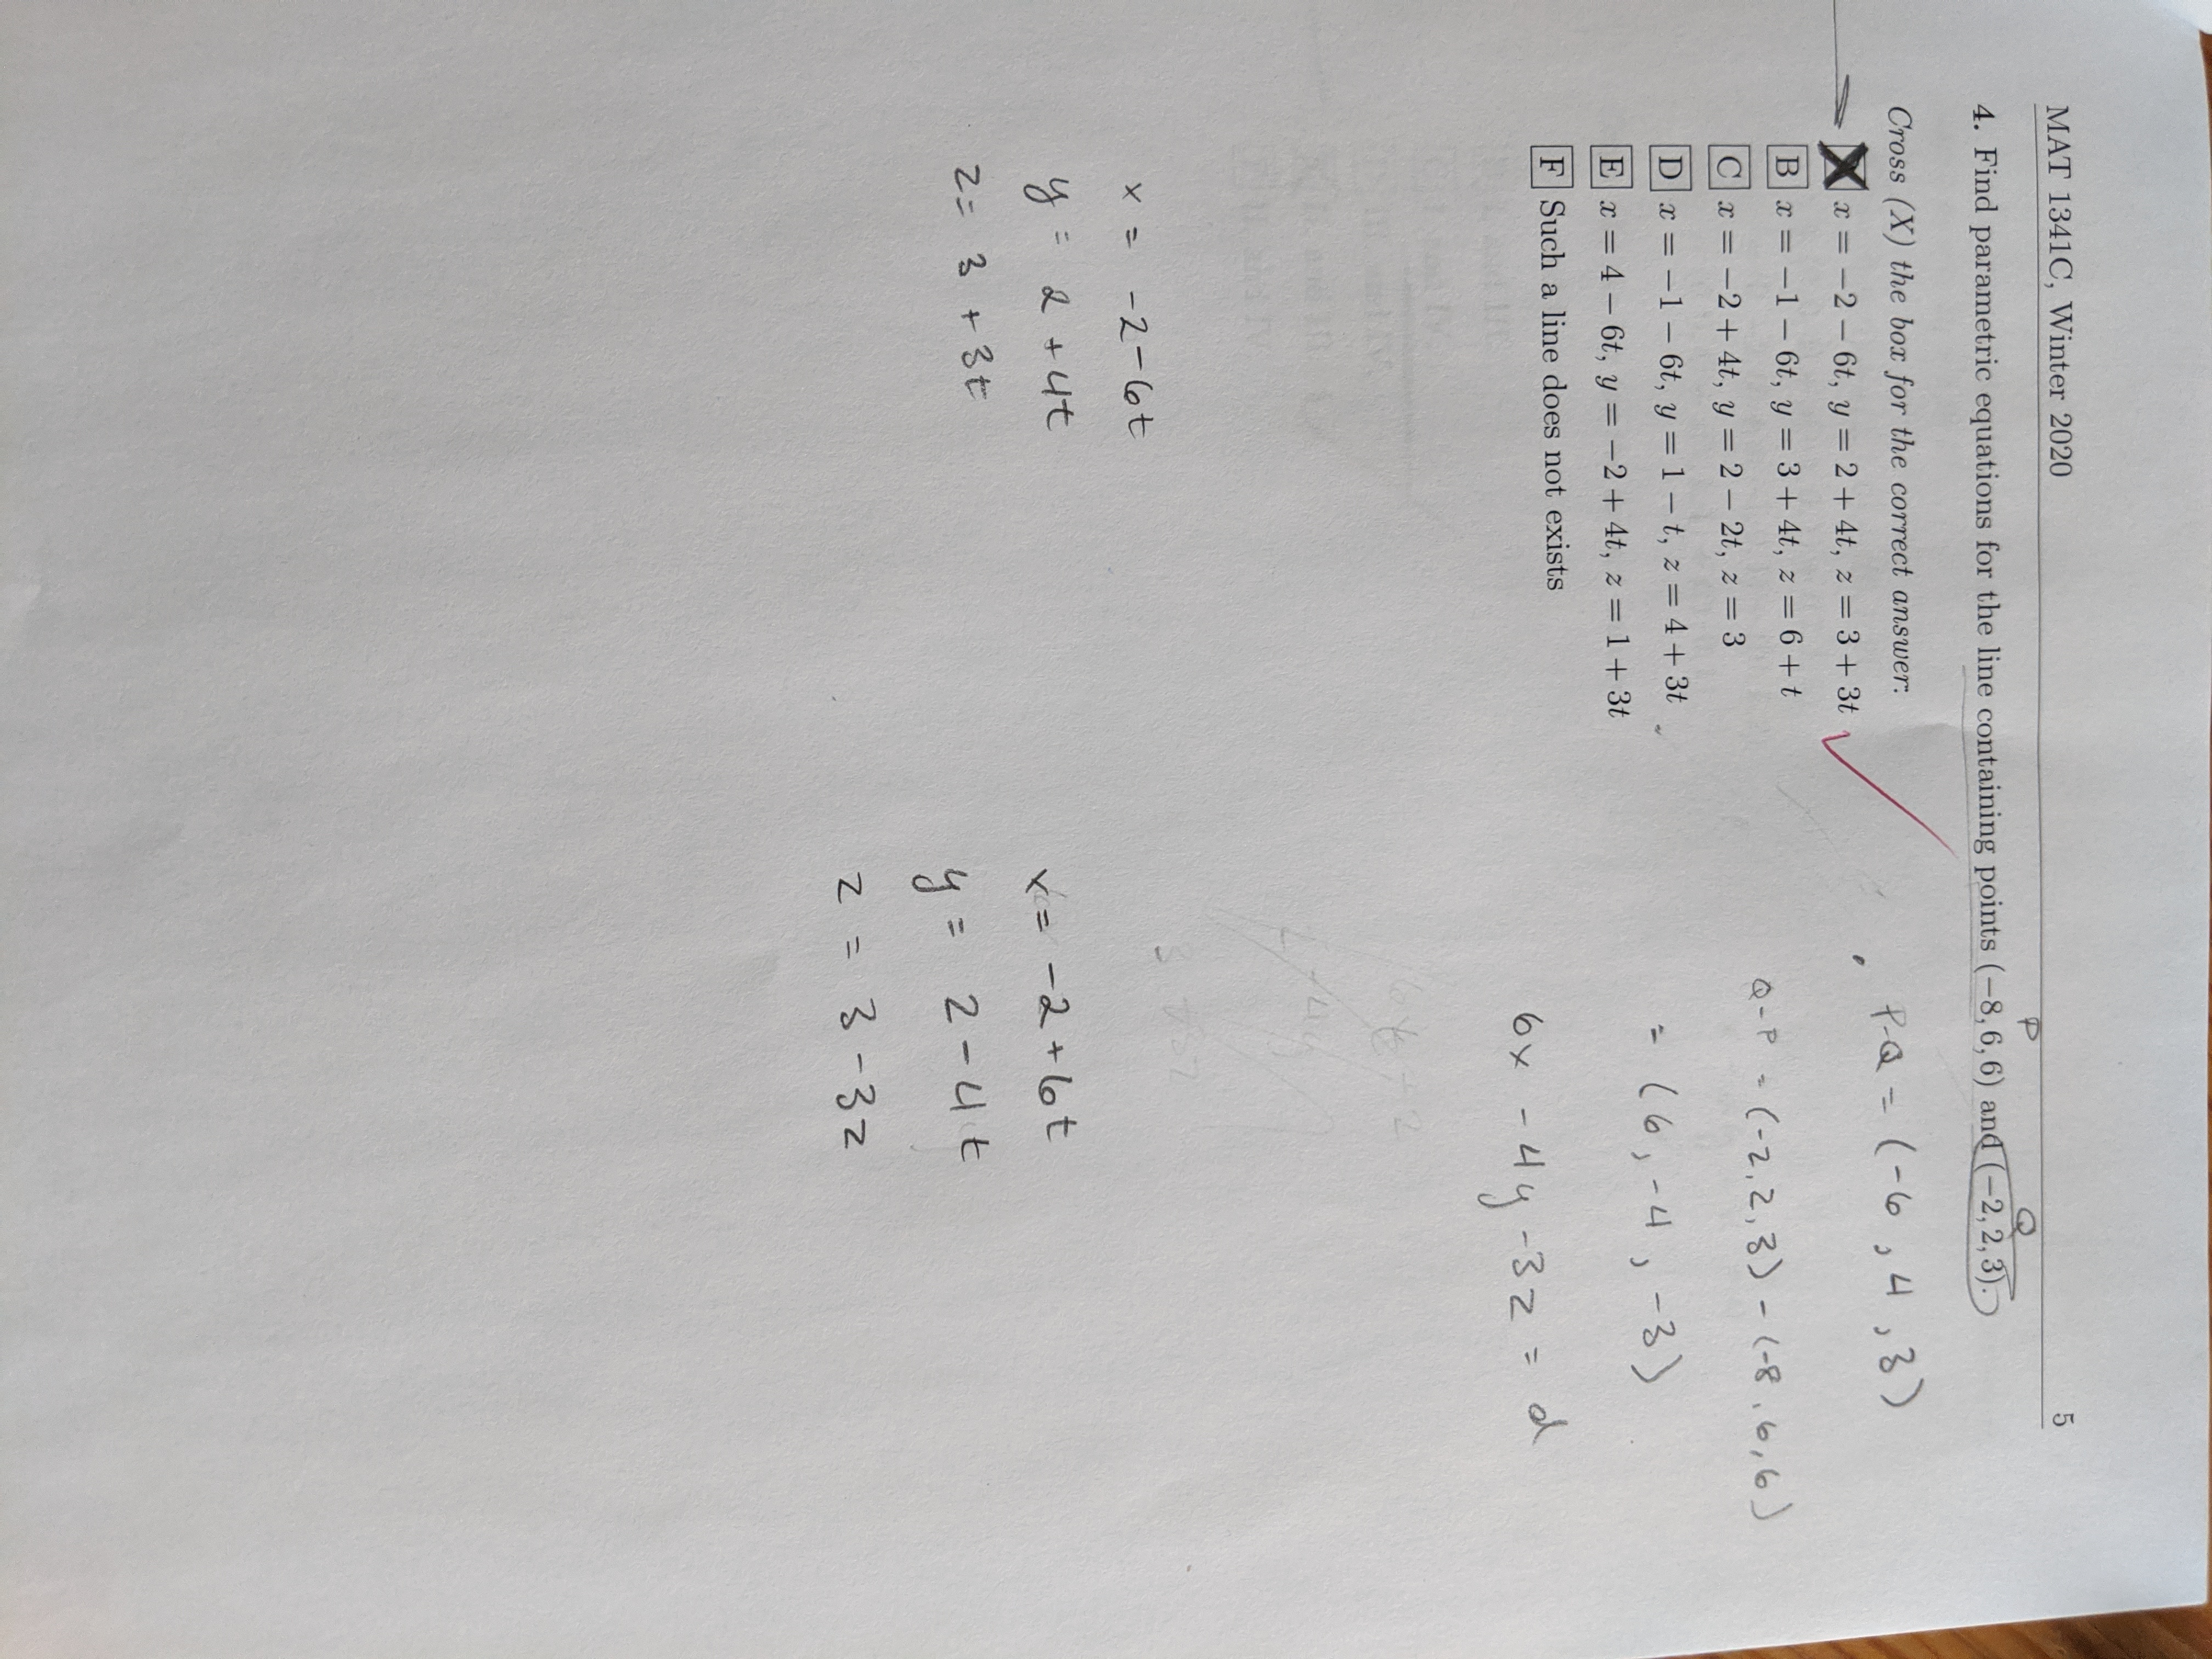 MAT 1341C, Winter 2020 5
P Q
4. Find parametric equations for the line containing points (−8, 6, 6) and (−2, 2, 3).
Cross (X) the box for the correct answer:
x = −2 − 6t, y = 2 + 4t, z = 3 + 3t
B x = −1 − 6t, y = 3 + 4t, z = 6 + t
C x = −2 + 4t, y = 2 − 2t, z = 3
D x = −1 − 6t, y = 1 − t, z = 4 + 3t
E x = 4 − 6t, y = −2 + 4t, z = 1 + 3t
F Such a line does not exists
P-Q = (-6, 4, 3)
Q-P = (-2, 2, 3) - (-8, 6, 6)
= (6, -4, -3)
6x - 4y - 3z = d
x = -2 - 6t
y = 2 + 4t
z = 3 + 3t
x = -2 + 6t
y = 2 - 4t
z = 3 - 3z